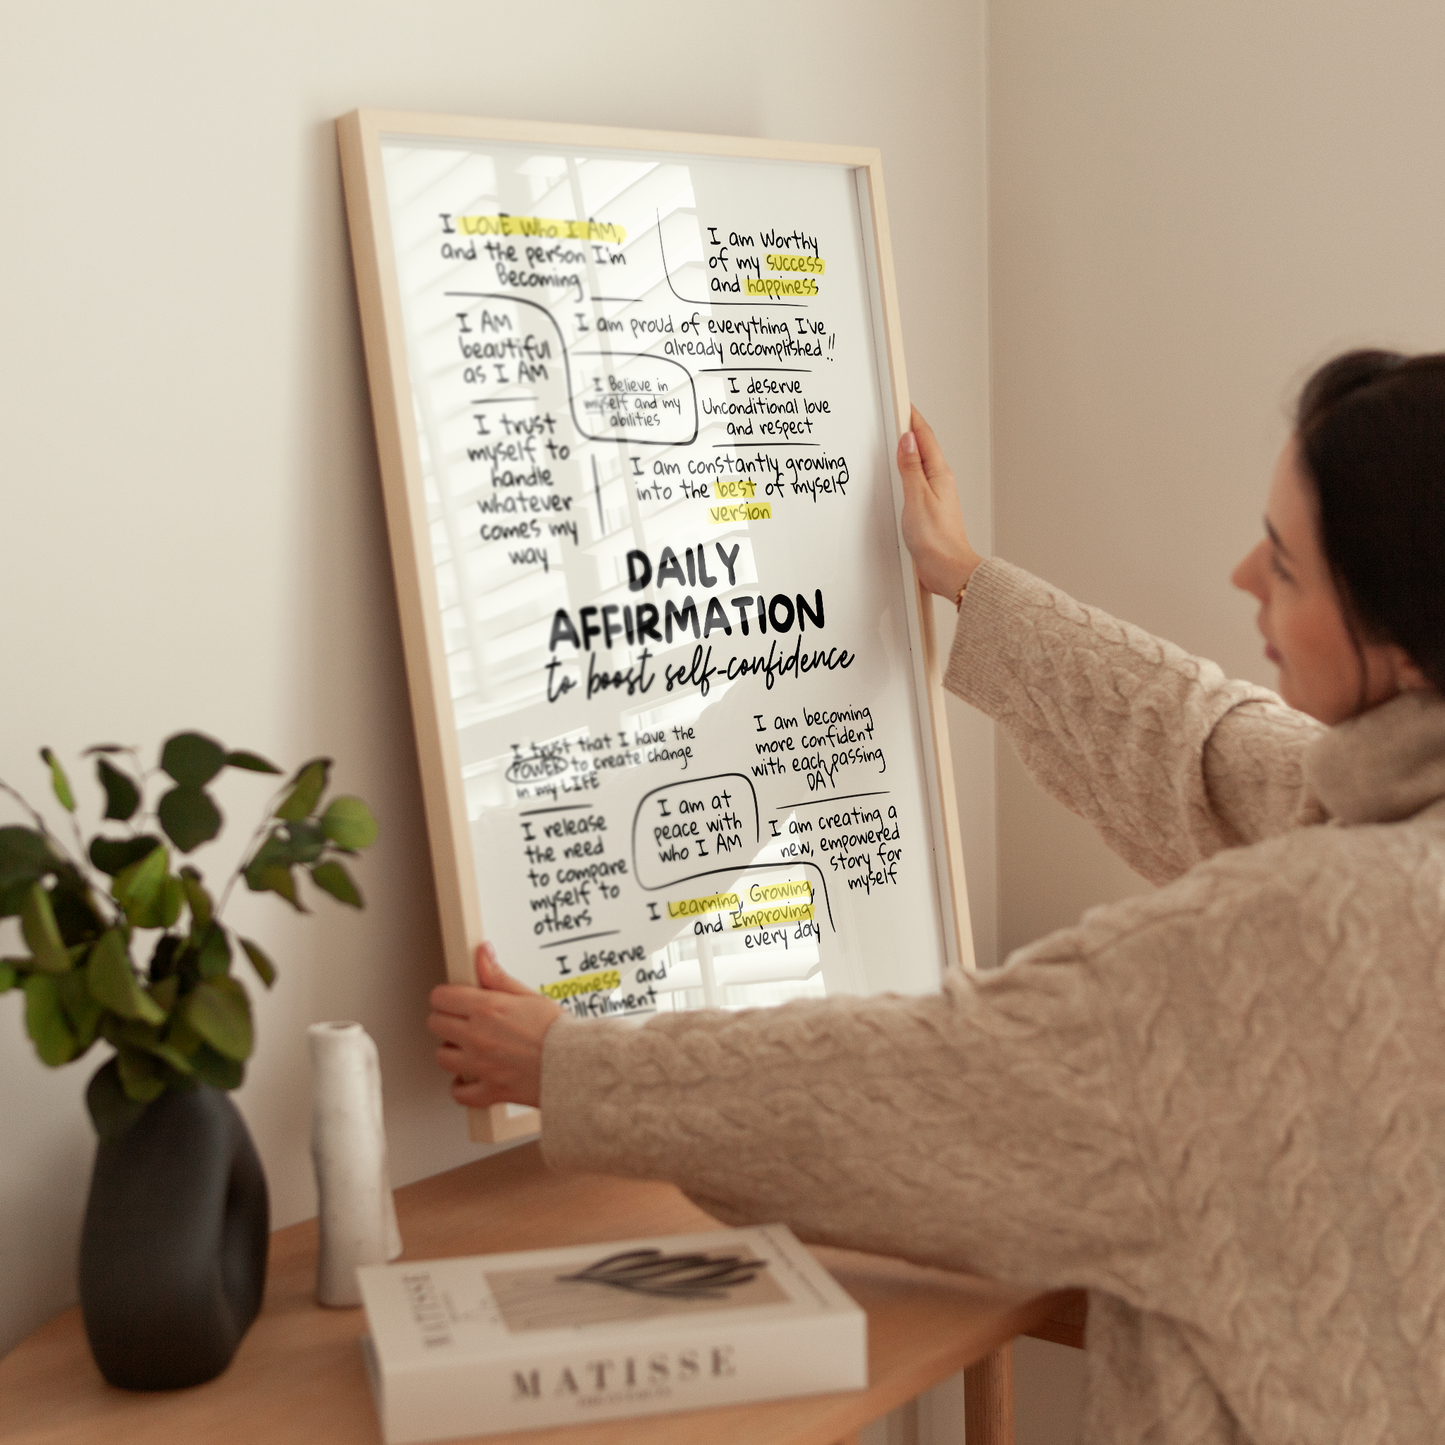 I LOVE Who I AM,
and the person I'm
Becoming
I am Worthy
of my success
and happiness
I AM
beautiful
as I AM
I am proud of everything I've
already accomplished !!
I Believe in
myself and my
abilities
I deserve
Unconditional love
and respect
I trust
myself to
handle
whatever
comes my
way
I am constantly growing
into the best of myself
version
DAILY
AFFIRMATION
to boost self-confidence
I trust that I have the
POWER to create change
in my LIFE
I am becoming
more confident
with each passing
DAY
I release
the need
to compare
myself to
others
I am at
peace with
who I AM
I am creating a
new, empowered
story for
myself
I Learning, Growing,
and Improving
every day
I deserve
happiness and
fulfillment
MATISSE
MATISSE